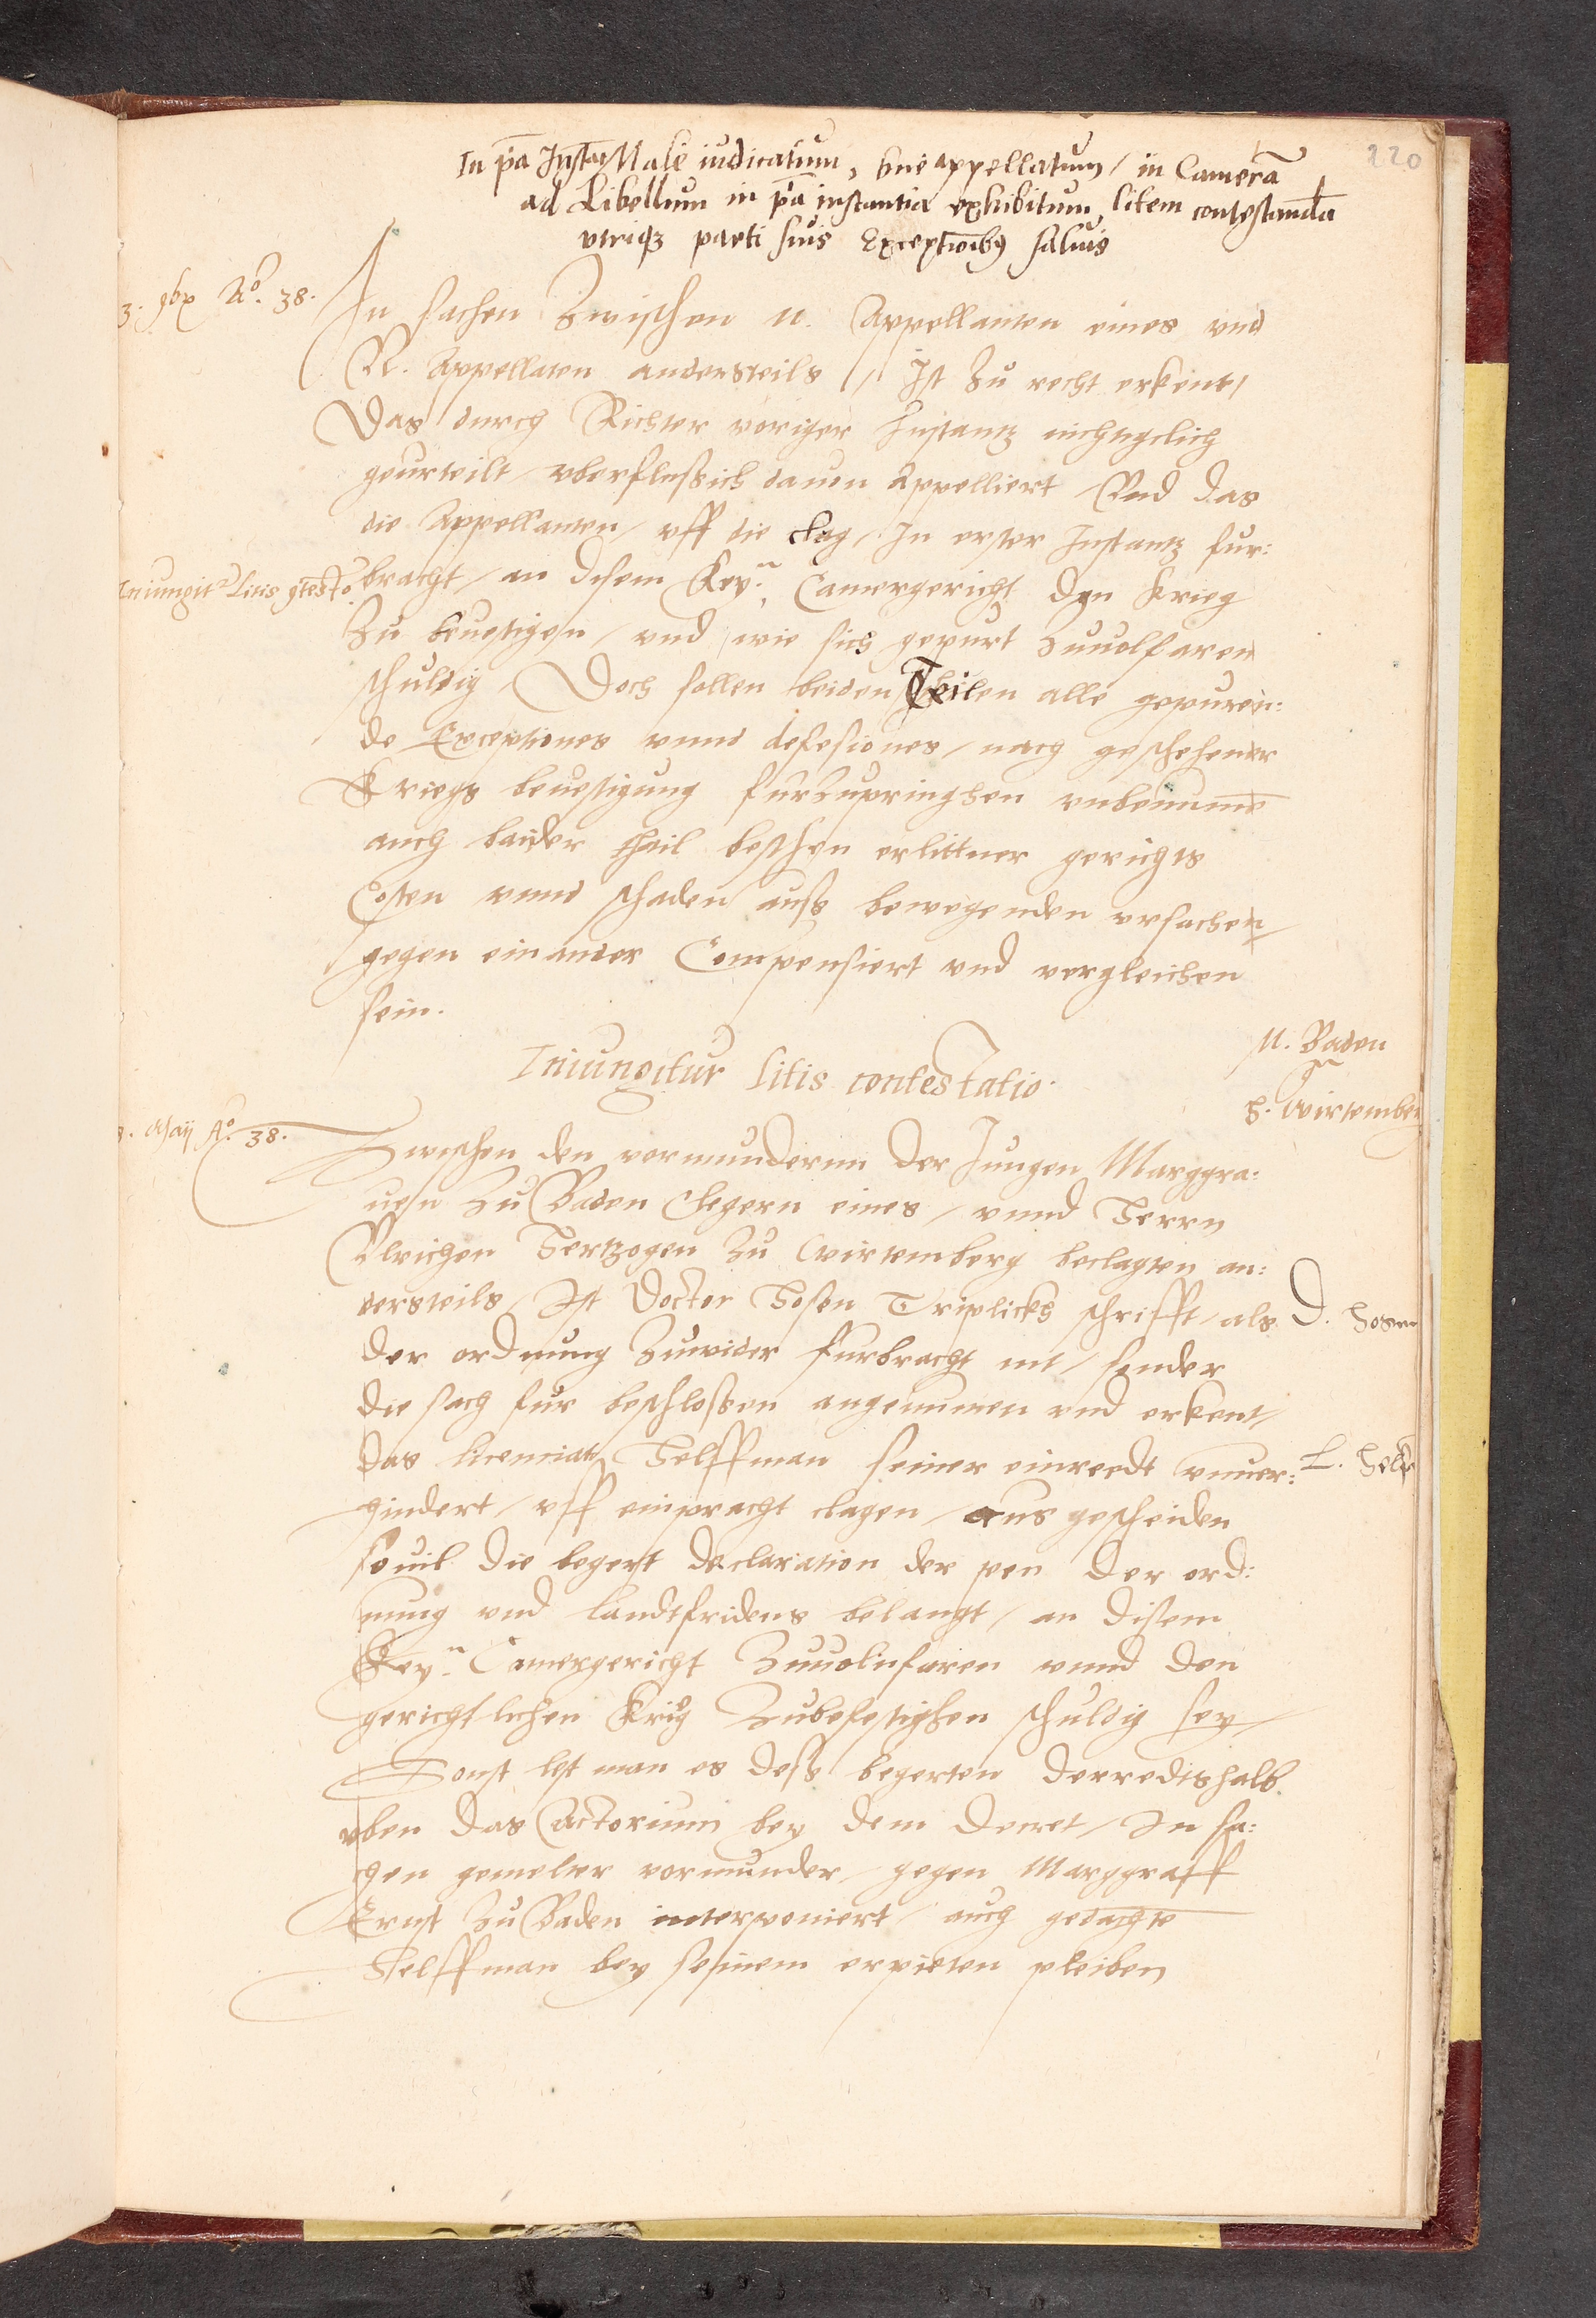 220
In p̄a Instā Male iudicatum, bn̄e appellatum / in Camerā
ad Libellum in p̄a instantia exhibitum, litem contestandā
vtriqȝ parti suis Exceptionibꝰ saluis
3. 9bꝛ Ao. 38.
In sachen Zwischen N. Appellanten eines vnd
N. Appellaten andersteils / Ist zu recht erkent /
Das durch Richter voriger Instantz nichtigclich
geurteilt / vberflussich dauon Appelliert / Vnd das
die Appellanten / vff die clag / In erster Instantz fur:
Iniungitr Litis 9testo.
bracht / an disem Key.n Camergericht den Krieg
zu beuestigen / vnd wie sich gepurt Zuuolfaren
schuldig / Doch sollen beiden Theilen alle gepuren:
de Exceptiones vnnd defesiones / nach geschehener
Kriegs beuestigung furzupringhen vnbenumē
auch baider theil beschen erlittner gerichts
Costen vnnd schaden auß bewegenden vrsachen /
gegen einander Compensiert vnd vergleichen
sein.
M. Baden
gn
H. Wirtemberg
Iniungitur litis contestatio.
8. Maij Ao. 38.
Zwischen den vormundernn der Jungen Marggra:
uen Zu Baden Clegern eines / vnnd Herrn
Vlrichen Hertzogen Zu Wirtemberg beclagten an:
dersteils / Ist Doctor Hosen Triplicks schrifft / als
D. Hosen
der ordnung Zuwider furbracht nit / sonder
die sach fur beschlossen angenumen vnd erkent /
das licenciat Helffman seiner einredt vnuer:
L. Helf
hindert / vff einpracht clagen / aus gescheiden
souil die begert declaration der pen der ord:
nung vnd landtfridens belangt / an disem
Key.n Camergericht Zuuolnfaren vnnd den
gerichtlichen Krig Zubefestighen schuldig sey /
Sonst lest man es deß begerten derredtshalb
vber das Actorium bey dem Decret / In sa:
chen gemelter vormunder / gegen Marggraff
Ernst Zu Baden interponiert / auch gedachte
Helffman bey seinem erpieten pleiben